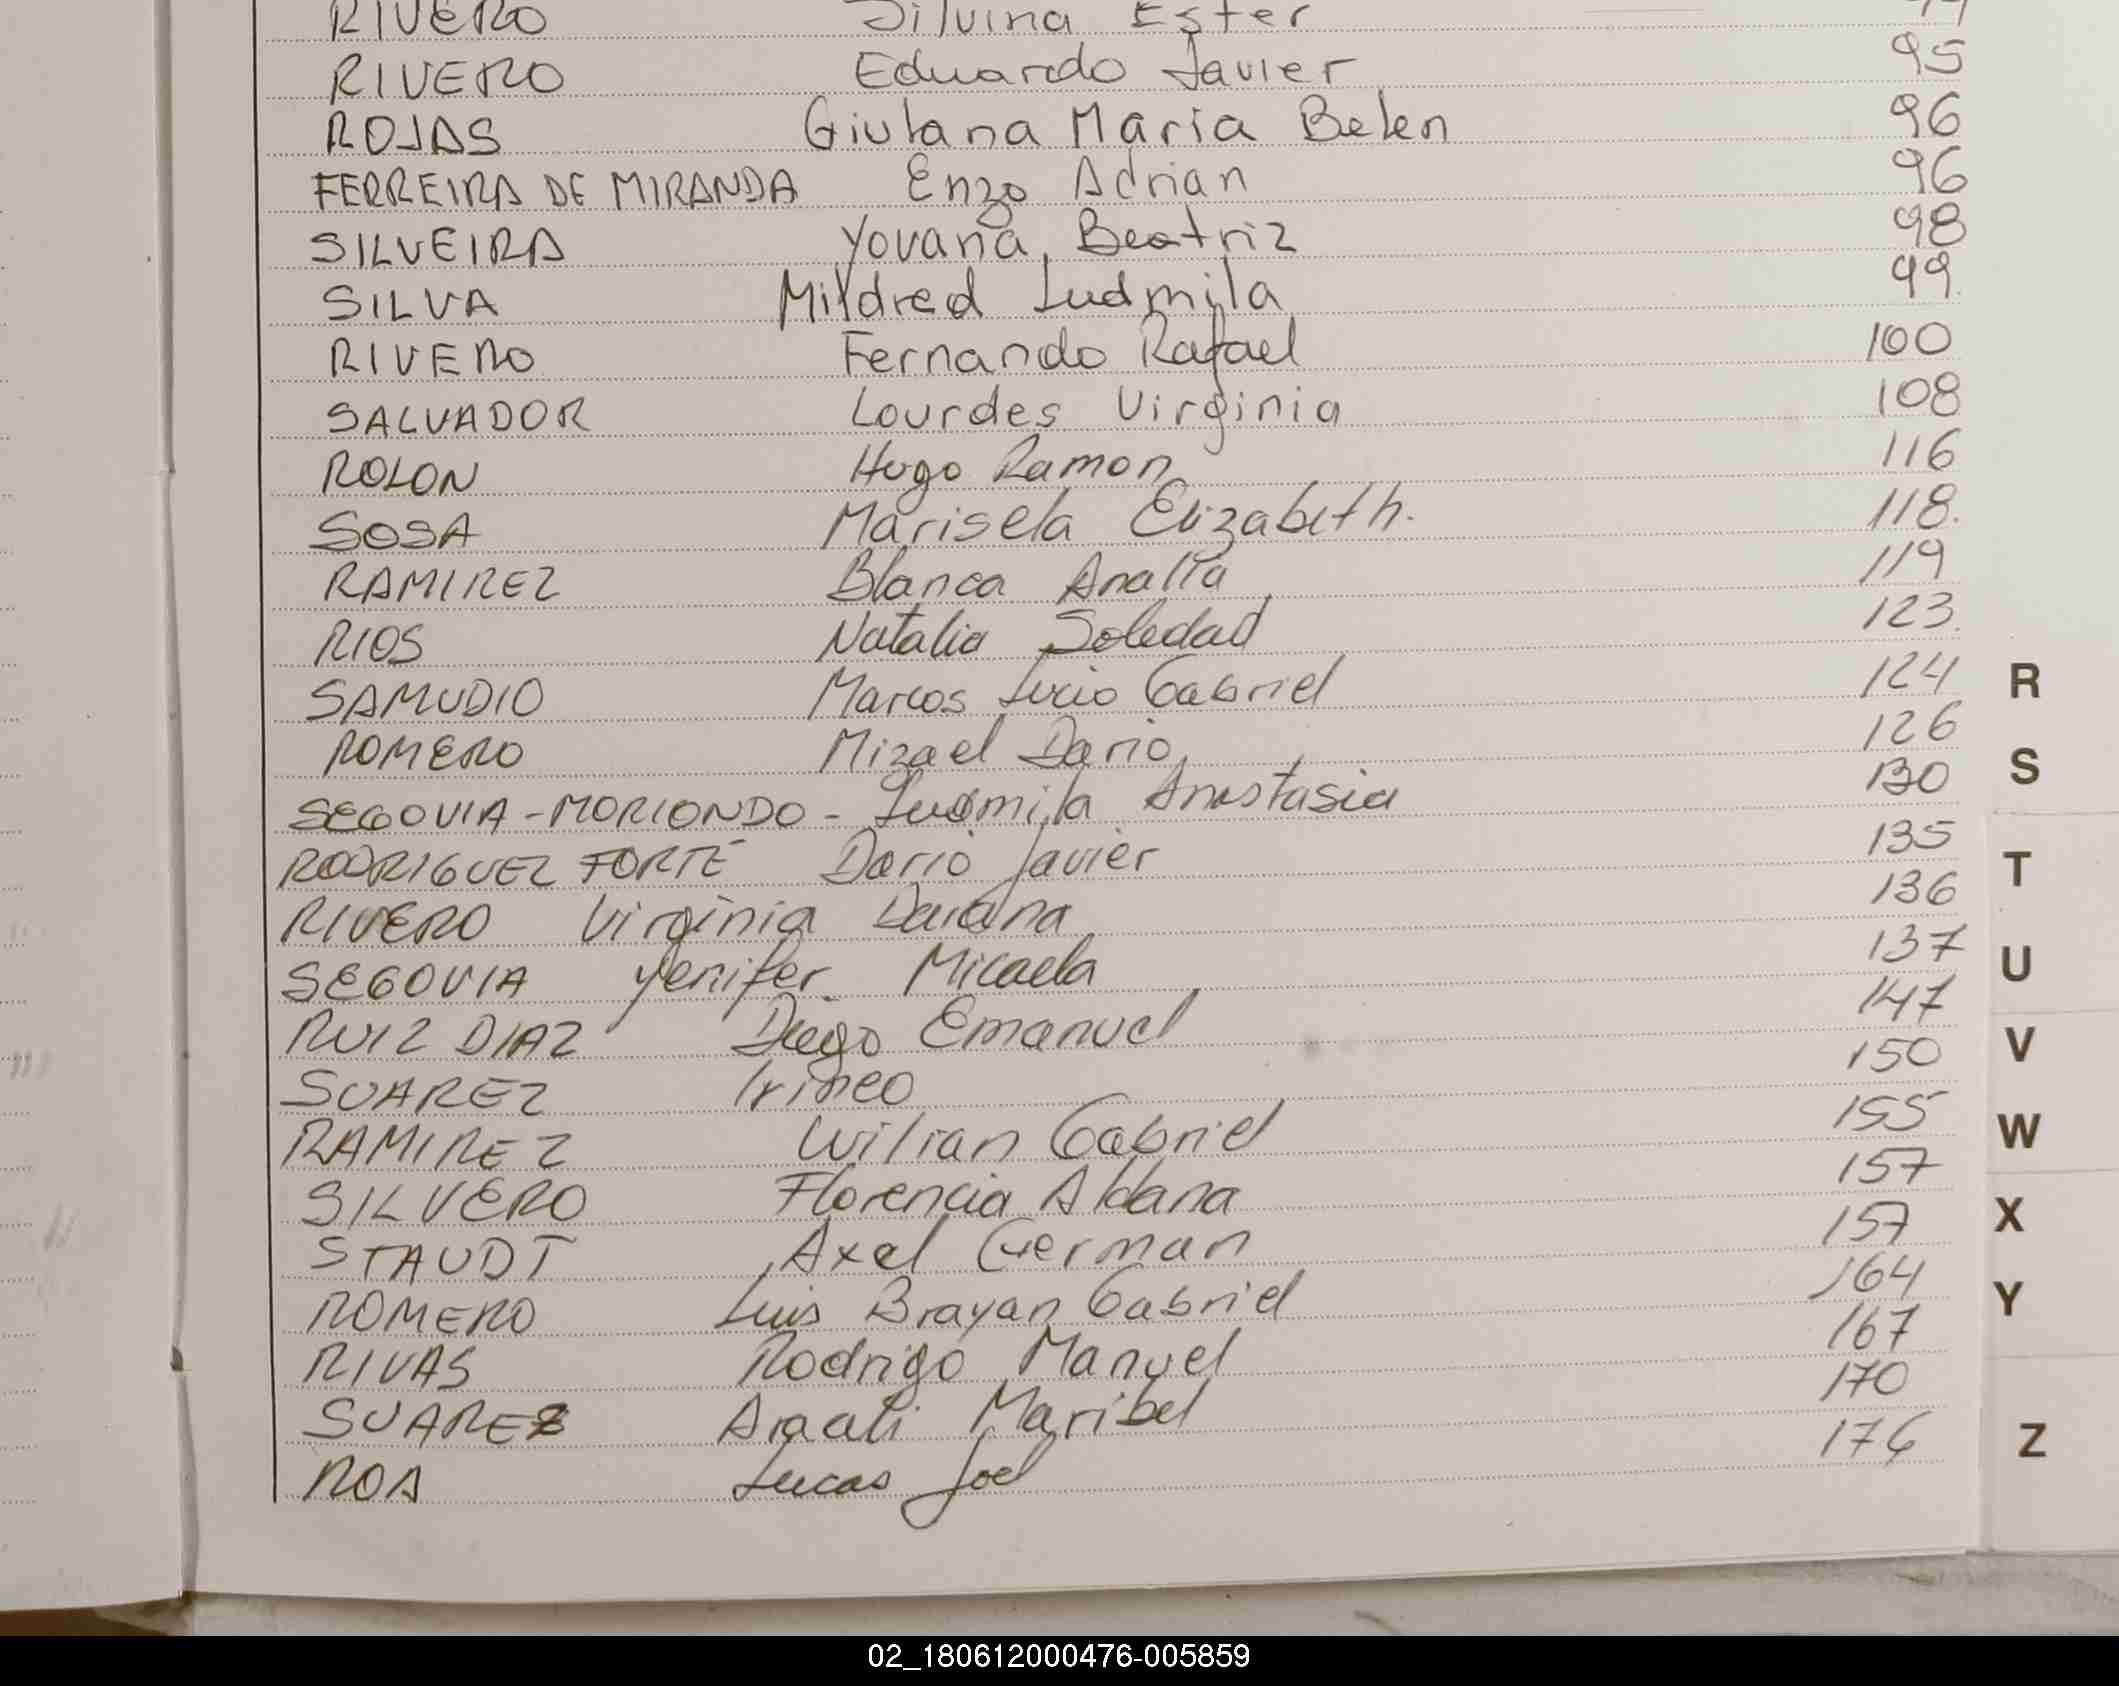 RIVERO Silvina Ester
RIVERO Eduardo Javier 95
ROJAS Giuliana Maria Belen 96
FERREIRA DE MIRANDA Enzo Adrian 96
SILVEIRA Yovana Beatriz 98
SILVA Mildred Ludmila 99
RIVERO Fernando Rafael 100
SALVADOR Lourdes Virginia 108
ROLON Hugo Ramon 116
SOSA Marisela Elizabeth. 118.
RAMIREZ Blanca Analía 119
RIOS Natalia Soledad 123.
SAMUDIO Marcos Lucio Gabriel 124
ROMERO Mizael Dario 126
SEGOVIA - MORIONDO - Ludmila Anastasia 130
RODRIGUEZ FORTE Dario Javier 135
RIVERO Virginia Daiana 136
SEGOVIA Yenifer Micaela 137
RUIZ DIAZ Diego Emanuel 147
SUAREZ Irineo 150
RAMIREZ Wilian Gabriel 155
SILVERO Florencia Aldana 157
STAUDT Axel German 157
ROMERO Luis Brayan Gabriel 164
RIVAS Rodrigo Manuel 167
SUAREZ Araceli Maribel 170
ROA Lucas Joel 176
R
S
T
U
V
W
X
Y
Z
02_180612000476-005859